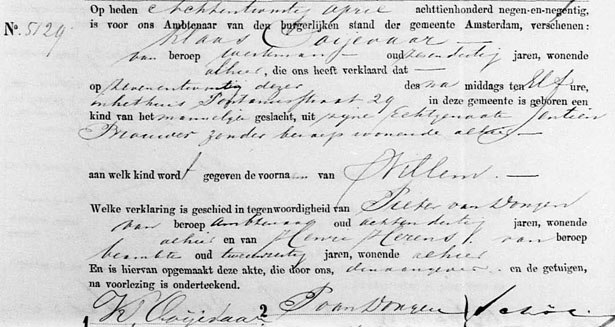 Op heden Achtentwintig April achttienhonderd negen-en-negentig,
No. 5129 is voor ons Ambtenaar van den burgerlijken stand der gemeente Amsterdam, verschenen:
Klaas Ooijevaar
van beroep werkman oud jaren, wonende
alhier, die ons heeft verklaard dat
op zevenentwintig dezer des na middags ten Elf ure,
in het huis Pontanusstraat 29 in deze gemeente is geboren een
kind van het mannelijke geslacht, uit zijne Echtgenoote Jentien
Brouwer zonder beroep wonende alhier
aan welk kind wordt gegeven de voorna van
Willem.
Welke verklaring is geschied in tegenwoordigheid van Pieter van Dongen
van beroep ambtenaar oud achtendertig jaren, wonende
alhier en van Henri Herens, van beroep
beambte oud jaren, wonende alhier
En is hiervan opgemaakt deze akte, die door ons, den aangever en de getuigen,
na voorlezing is onderteekend.
K Ooijevaar 2 P van Dongen
1